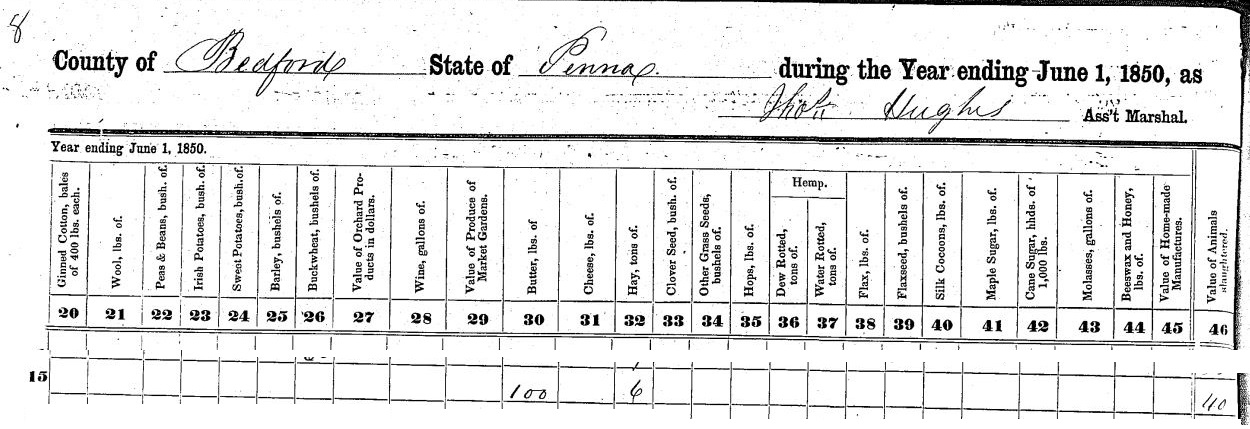 8
County of Bedford State of Penna. during the Year ending June 1, 1850, as
Hughes Ass't Marshal.
Year ending June 1, 1850.
Ginned Cotton, bales of 400 lbs. each.
Wool, lbs. of.
Peas & Beans, bush. of.
Irish Potatoes, bush. of.
Sweet Potatoes, bush. of.
Barley, bushels of.
Buckwheat, bushels of.
Value of Orchard Products in dollars.
Wine, gallons of.
Value of Produce of Market Gardens.
Butter, lbs. of
Cheese, lbs. of.
Hay, tons of.
Clover Seed, bush. of.
Other Grass Seeds, bushels of.
Hops, lbs. of.
Hemp.
Dew Rotted, tons of.
Water Rotted, tons of.
Flax, lbs. of.
Flaxseed, bushels of.
Silk Cocoons, lbs. of.
Maple Sugar, lbs. of.
Cane Sugar, hhds. of 1,000 lbs.
Molasses, gallons of.
Beeswax and Honey, lbs. of.
Value of Home-made Manufactures.
Value of Animals slaughtered.
20 21 22 23 24 25 26 27 28 29 30 31 32 33 34 35 36 37 38 39 40 41 42 43 44 45 46
15 100 6 40